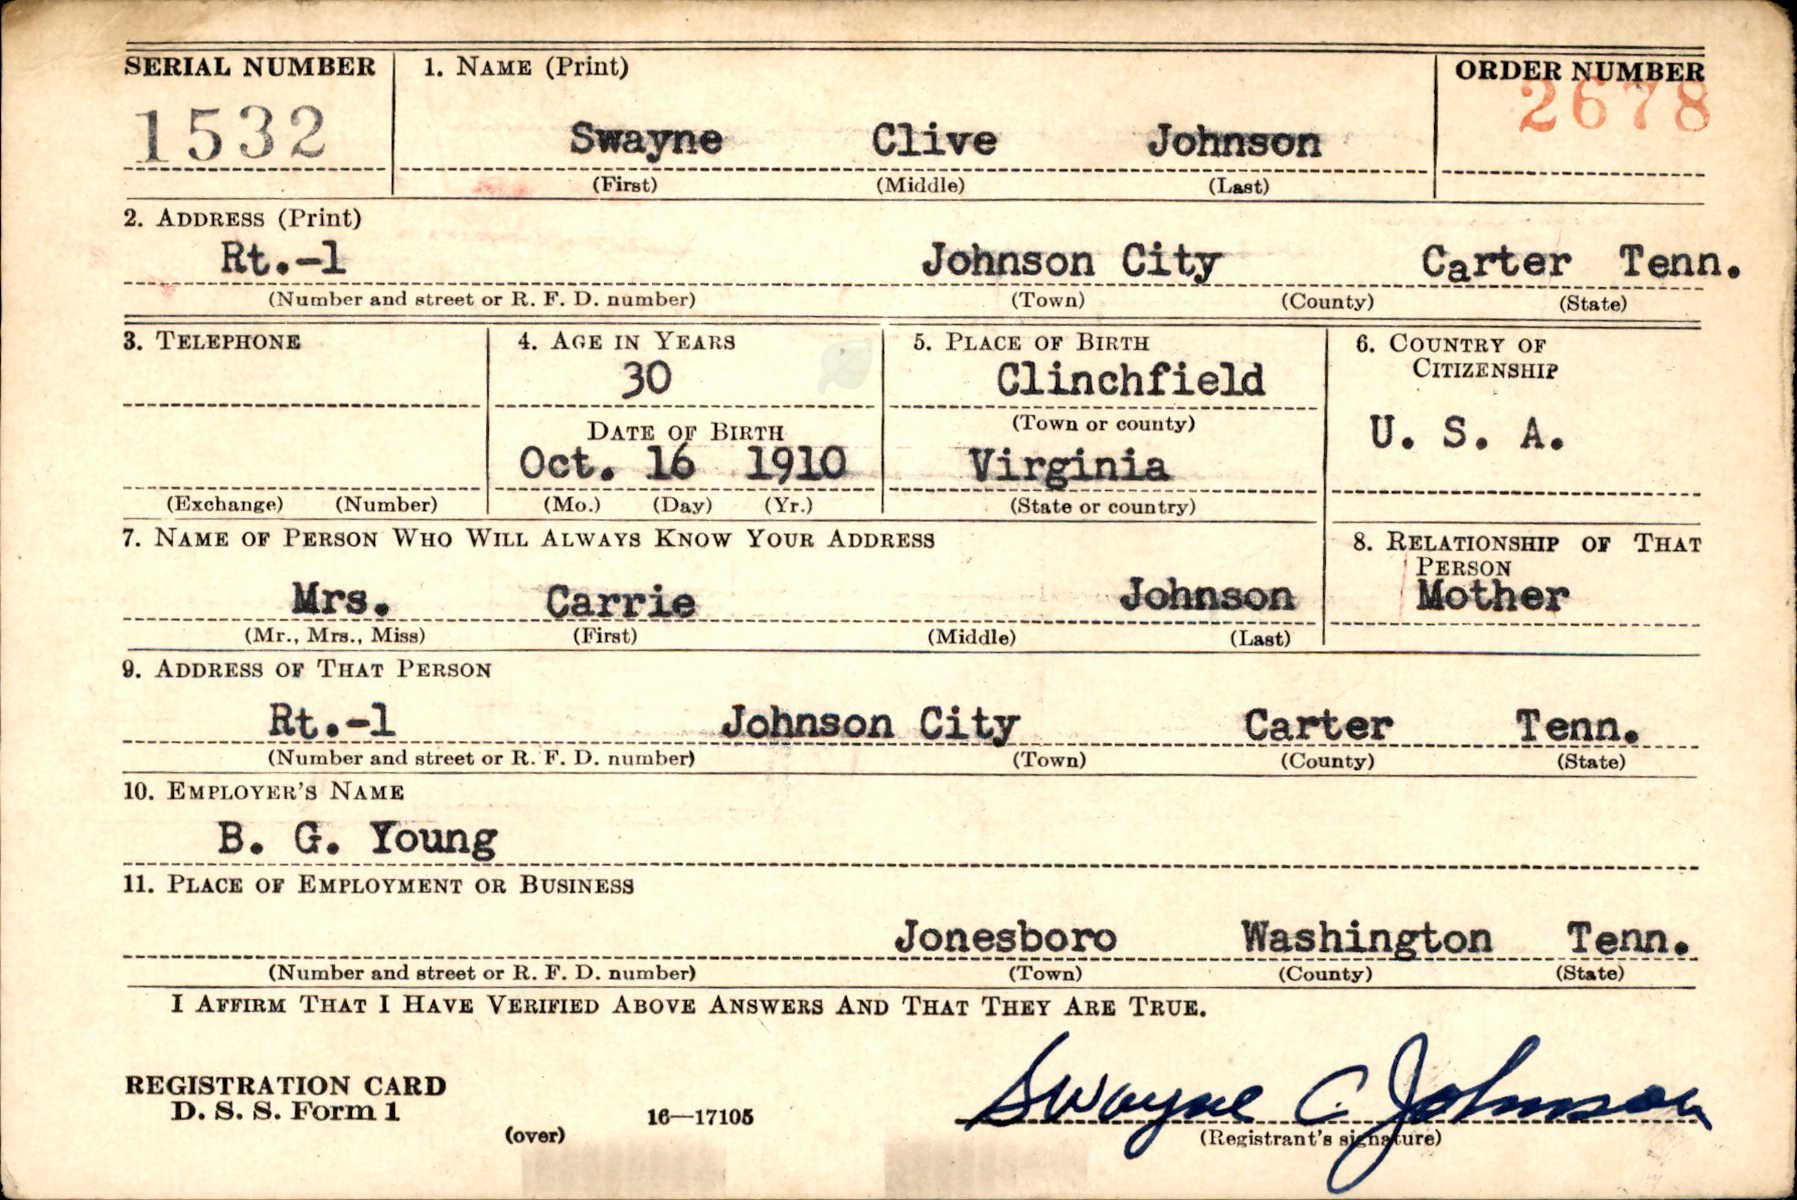 SERIAL NUMBER 1. NAME (Print) ORDER NUMBER
1532 Swayne Clive Johnson 2678
(First) (Middle) (Last)
2. ADDRESS (Print)
Rt.-1 Johnson City Carter Tenn.
(Number and street or R. F. D. number) (Town) (County) (State)
3. TELEPHONE 4. AGE IN YEARS 5. PLACE OF BIRTH 6. COUNTRY OF
CITIZENSHIP
30 Clinchfield
(Town or county)
DATE OF BIRTH U. S. A.
Oct. 16 1910 Virginia
(Exchange) (Number) (Mo.) (Day) (Yr.) (State or country)
7. NAME OF PERSON WHO WILL ALWAYS KNOW YOUR ADDRESS 8. RELATIONSHIP OF THAT
PERSON
Mrs. Carrie Johnson Mother
(Mr., Mrs., Miss) (First) (Middle) (Last)
9. ADDRESS OF THAT PERSON
Rt.-1 Johnson City Carter Tenn.
(Number and street or R. F. D. number) (Town) (County) (State)
10. EMPLOYER'S NAME
B. G. Young
11. PLACE OF EMPLOYMENT OR BUSINESS
Jonesboro Washington Tenn.
(Number and street or R. F. D. number) (Town) (County) (State)
I AFFIRM THAT I HAVE VERIFIED ABOVE ANSWERS AND THAT THEY ARE TRUE.
REGISTRATION CARD
D. S. S. Form 1 16—17105 Swayne C. Johnson
(over) (Registrant's signature)